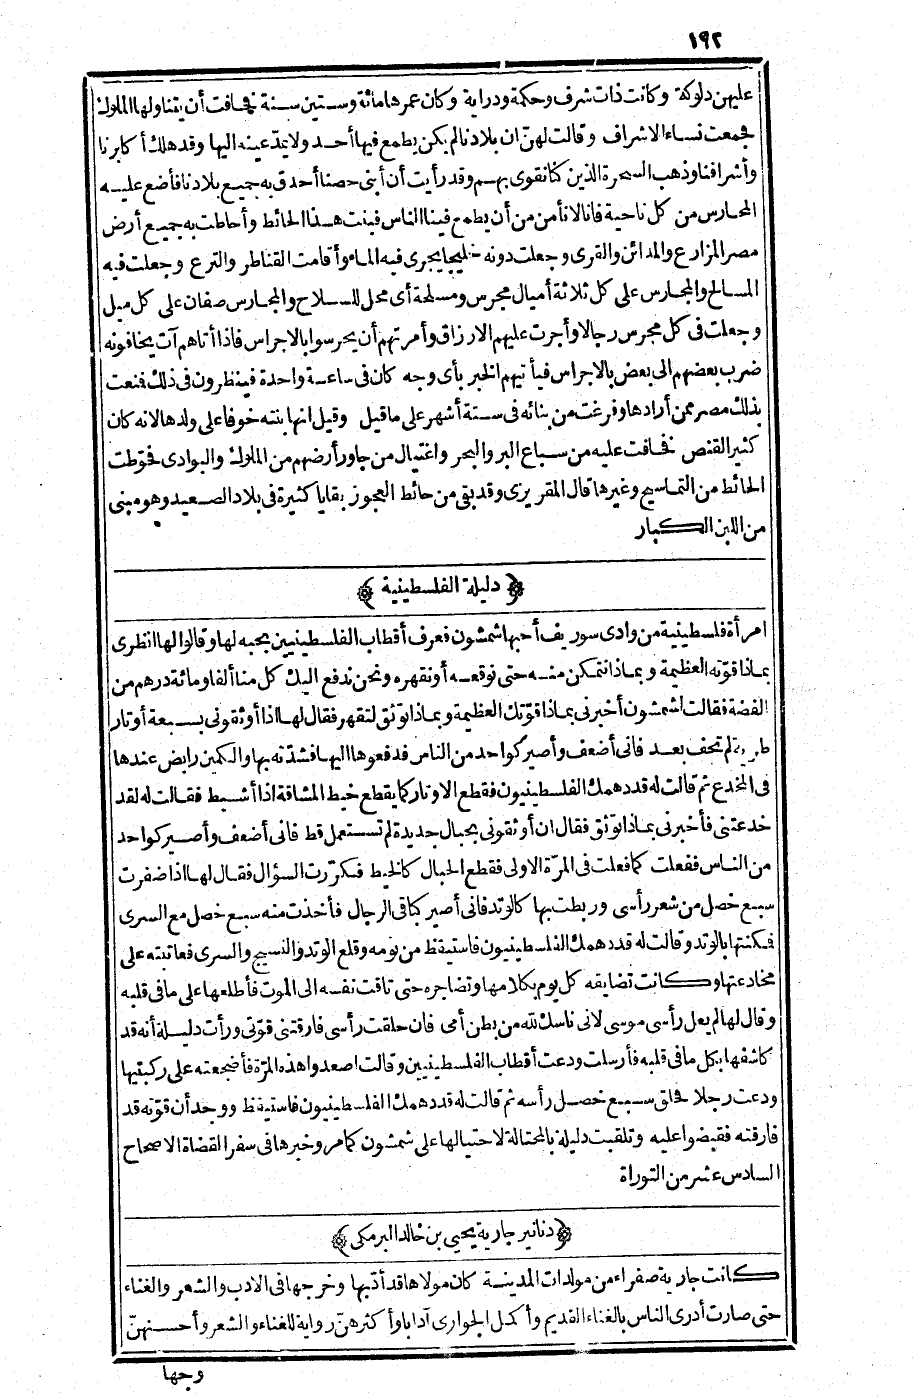 ١٩٢
عليهن دلوكة وكانت ذات شرف وحكمة ودراية وكان عمرها مائة وستين سنة فخافت أن يتناولها الملوك
فجمعت نساء الاشراف وقالت لهنّ ان بلادنا لم يكن يطمع فيها أحد ولا يمدّ عينه اليها وقد هلك أكابرنا
وأشرافنا وذهب السحرة الذين كنا نقوى بهم وقد رأيت أن أبنى حصنا أحدق به جميع بلادنا فأضع عليه
المحارس من كل ناحية فانا لا نأمن من أن يطمع فينا الناس فبنت هذا الحائط وأحاطت به جميع أرض
مصر المزارع والمدائن والقرى وجعلت دونه خليجا يجرى فيه الماء وأقامت القناطر والترع وجعلت فيه
المسالح والمحارس على كل ثلاثة أميال محرس ومسلحة أى محل للسلاح والمحارس صفان على كل ميل
وجعلت فى كل محرس رجالا وأجرت عليهم الارزاق وأمرتهم أن يحرسوا بالاجراس فاذا أتاهم آت يخافونه
ضرب بعضهم الى بعض بالاجراس فيأتيهم الخبر بأى وجه كان فى ساعة واحدة فينظرون فى ذلك فمنعت
بذلك مصر ممن أرادها وفرغت من بنائه فى ستة أشهر على ما قيل وقيل انها بنته خوفا على ولدها لانه كان
كثير القنص فخافت عليه من سباع البر والبحر واغتيال من جاور أرضهم من الملوك والبوادى فحوّطت
الحائط من التماسيح وغيرها قال المقريزى وقد بقى من حائط العجوز بقايا كثيرة فى بلاد الصعيد وهو مبنى
من اللبن الكبار
﴿دليلة الفلسطينية﴾
امرأة فلسطينية من وادى سوريف أحبها شمشون فعرف أقطاب الفلسطينيين بحبه لها وقالوا لها انظرى
بماذا قوّته العظيمة وبماذا نتمكن منه حتى نوقعه أو نقهره ونحن ندفع اليك كل منا ألفا ومائة درهم من
الفضة فقالت لشمشون أخبرنى بماذا قوّتك العظيمة وبماذا توثق لتقهر فقال لها اذا أوثقونى بسبعة أوتار
طرية لم تجف بعد فانى أضعف وأصير كواحد من الناس فدفعوها اليها فشدّته بها والكمين رابض عندها
فى المخدع ثم قالت له قد دهمك الفلسطينيون فقطع الاوتار كما يقطع خيط المشاقة اذا أشيط فقالت له لقد
خدعتنى فأخبرنى بماذا توثق فقال ان أوثقونى بحبال جديدة لم تستعمل قط فانى أضعف وأصير كواحد
من الناس ففعلت كما فعلت فى المرّة الاولى فقطع الحبال كالخيط فكرّرت السؤال فقال لها اذا ضفرت
سبع خصل من شعر رأسى وربطت بها كالوتد فانى أصير كباقى الرجال فأخذت منه سبع خصل مع السرى
فمكنتها بالوتد وقالت له قد دهمك الفلسطينيون فاستيقظ من نومه وقلع الوتد والنسيج والسرى فعاتبته على
مخادعتها وكانت تضايقه كل يوم بكلامها وتضاجره حتى تاقت نفسه الى الموت فأطلعها على ما فى قلبه
وقال لها لم يعل رأسى موسى لانى ناسك لله من بطن أمى فان حلقت رأسى فارقتنى قوّتى ورأت دليلة أنه قد
كاشفها بكل ما فى قلبه فأرسلت ودعت أقطاب الفلسطينيين وقالت اصعدوا هذه المرّة فأضجعته على ركبتيها
ودعت رجلا فحلق سبع خصل رأسه ثم قالت له قد دهمك الفلسطينيون فاستيقظ ووجد أن قوّته قد
فارقته فقبضوا عليه وتلقبت دليلة بالمحتالة لاحتيالها على شمشون كما مر وخبرها فى سفر القضاة الاصحاح
السادس عشر من التوراة
﴿دنانير جارية يحيى بن خالد البرمكى﴾
كانت جارية صفراء من مولدات المدينة كان مولاها قد أدّبها وخرجها فى الادب والشعر والغناء
حتى صارت أدرى الناس بالغناء القديم وأكمل الجوارى آدابا وأكثرهنّ رواية للغناء والشعر وأحسنهنّ
وجها